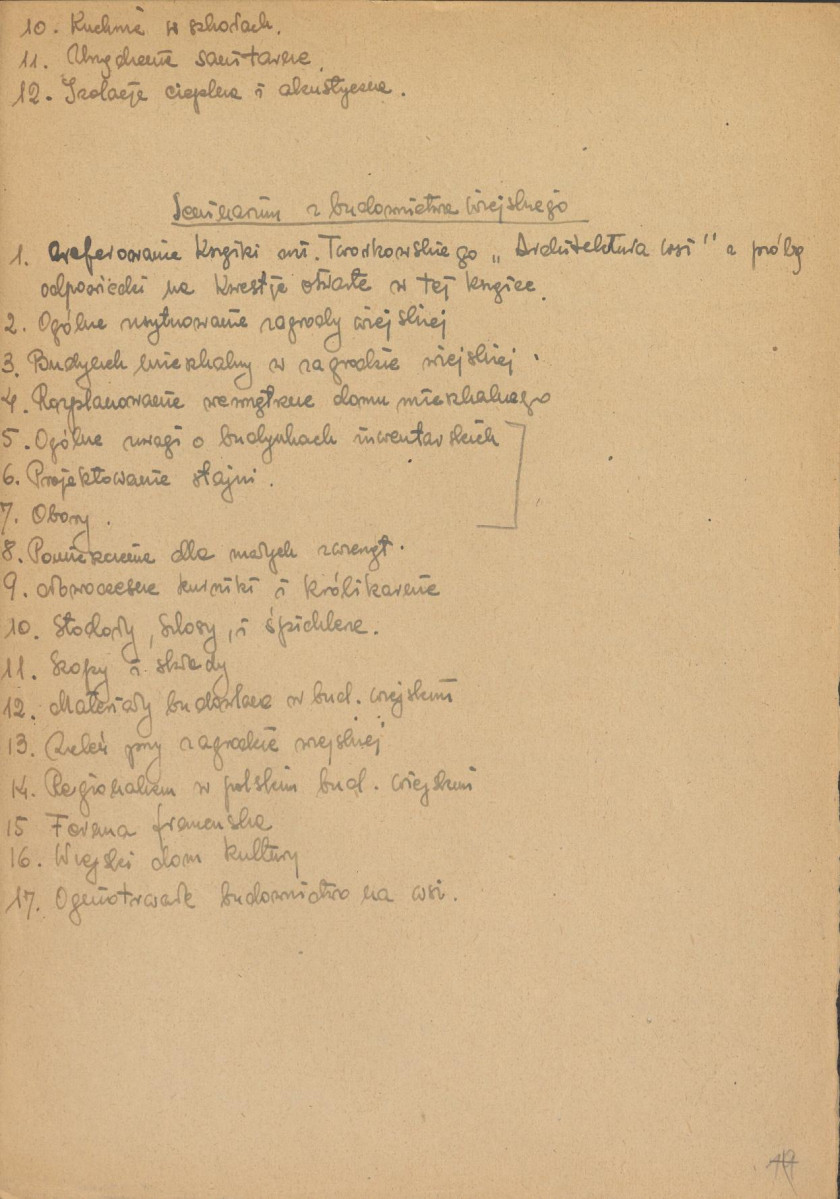 10. Kuchnie w szkołach.
11. Urządzenia sanitarne.
12. Izolacje cieplne i akustyczne.
Seminarium z budownictwa wiejskiego
1. Zreferowanie książki inż. Tworkowskiego „Architektura wsi" z próbą
odpowiedzi na kwestje otwarte w tej książce.
2. Ogólne usytuowanie zagrody wiejskiej
3. Budynek mieszkalny w zagrodzie wiejskiej.
4. Rozplanowanie wewnętrzne domu mieszkalnego
5. Ogólne uwagi o budynkach inwentarskich
6. Projektowanie stajni.
7. Obory.
8. Pomieszczenia dla małych zwierząt.
9. Nowoczesne kurniki i królikarnie
10. Stodoły, silosy, i śpichlerze.
11. Szopy i składy
12. Materiały budowlane w bud. wiejskim
13. Zieleń przy zagrodzie wiejskiej
14. Regionalizm w polskim bud. wiejskim
15 Forma
16. Wiejski dom kultury
17. Ogniotrwałe budownictwo na wsi.